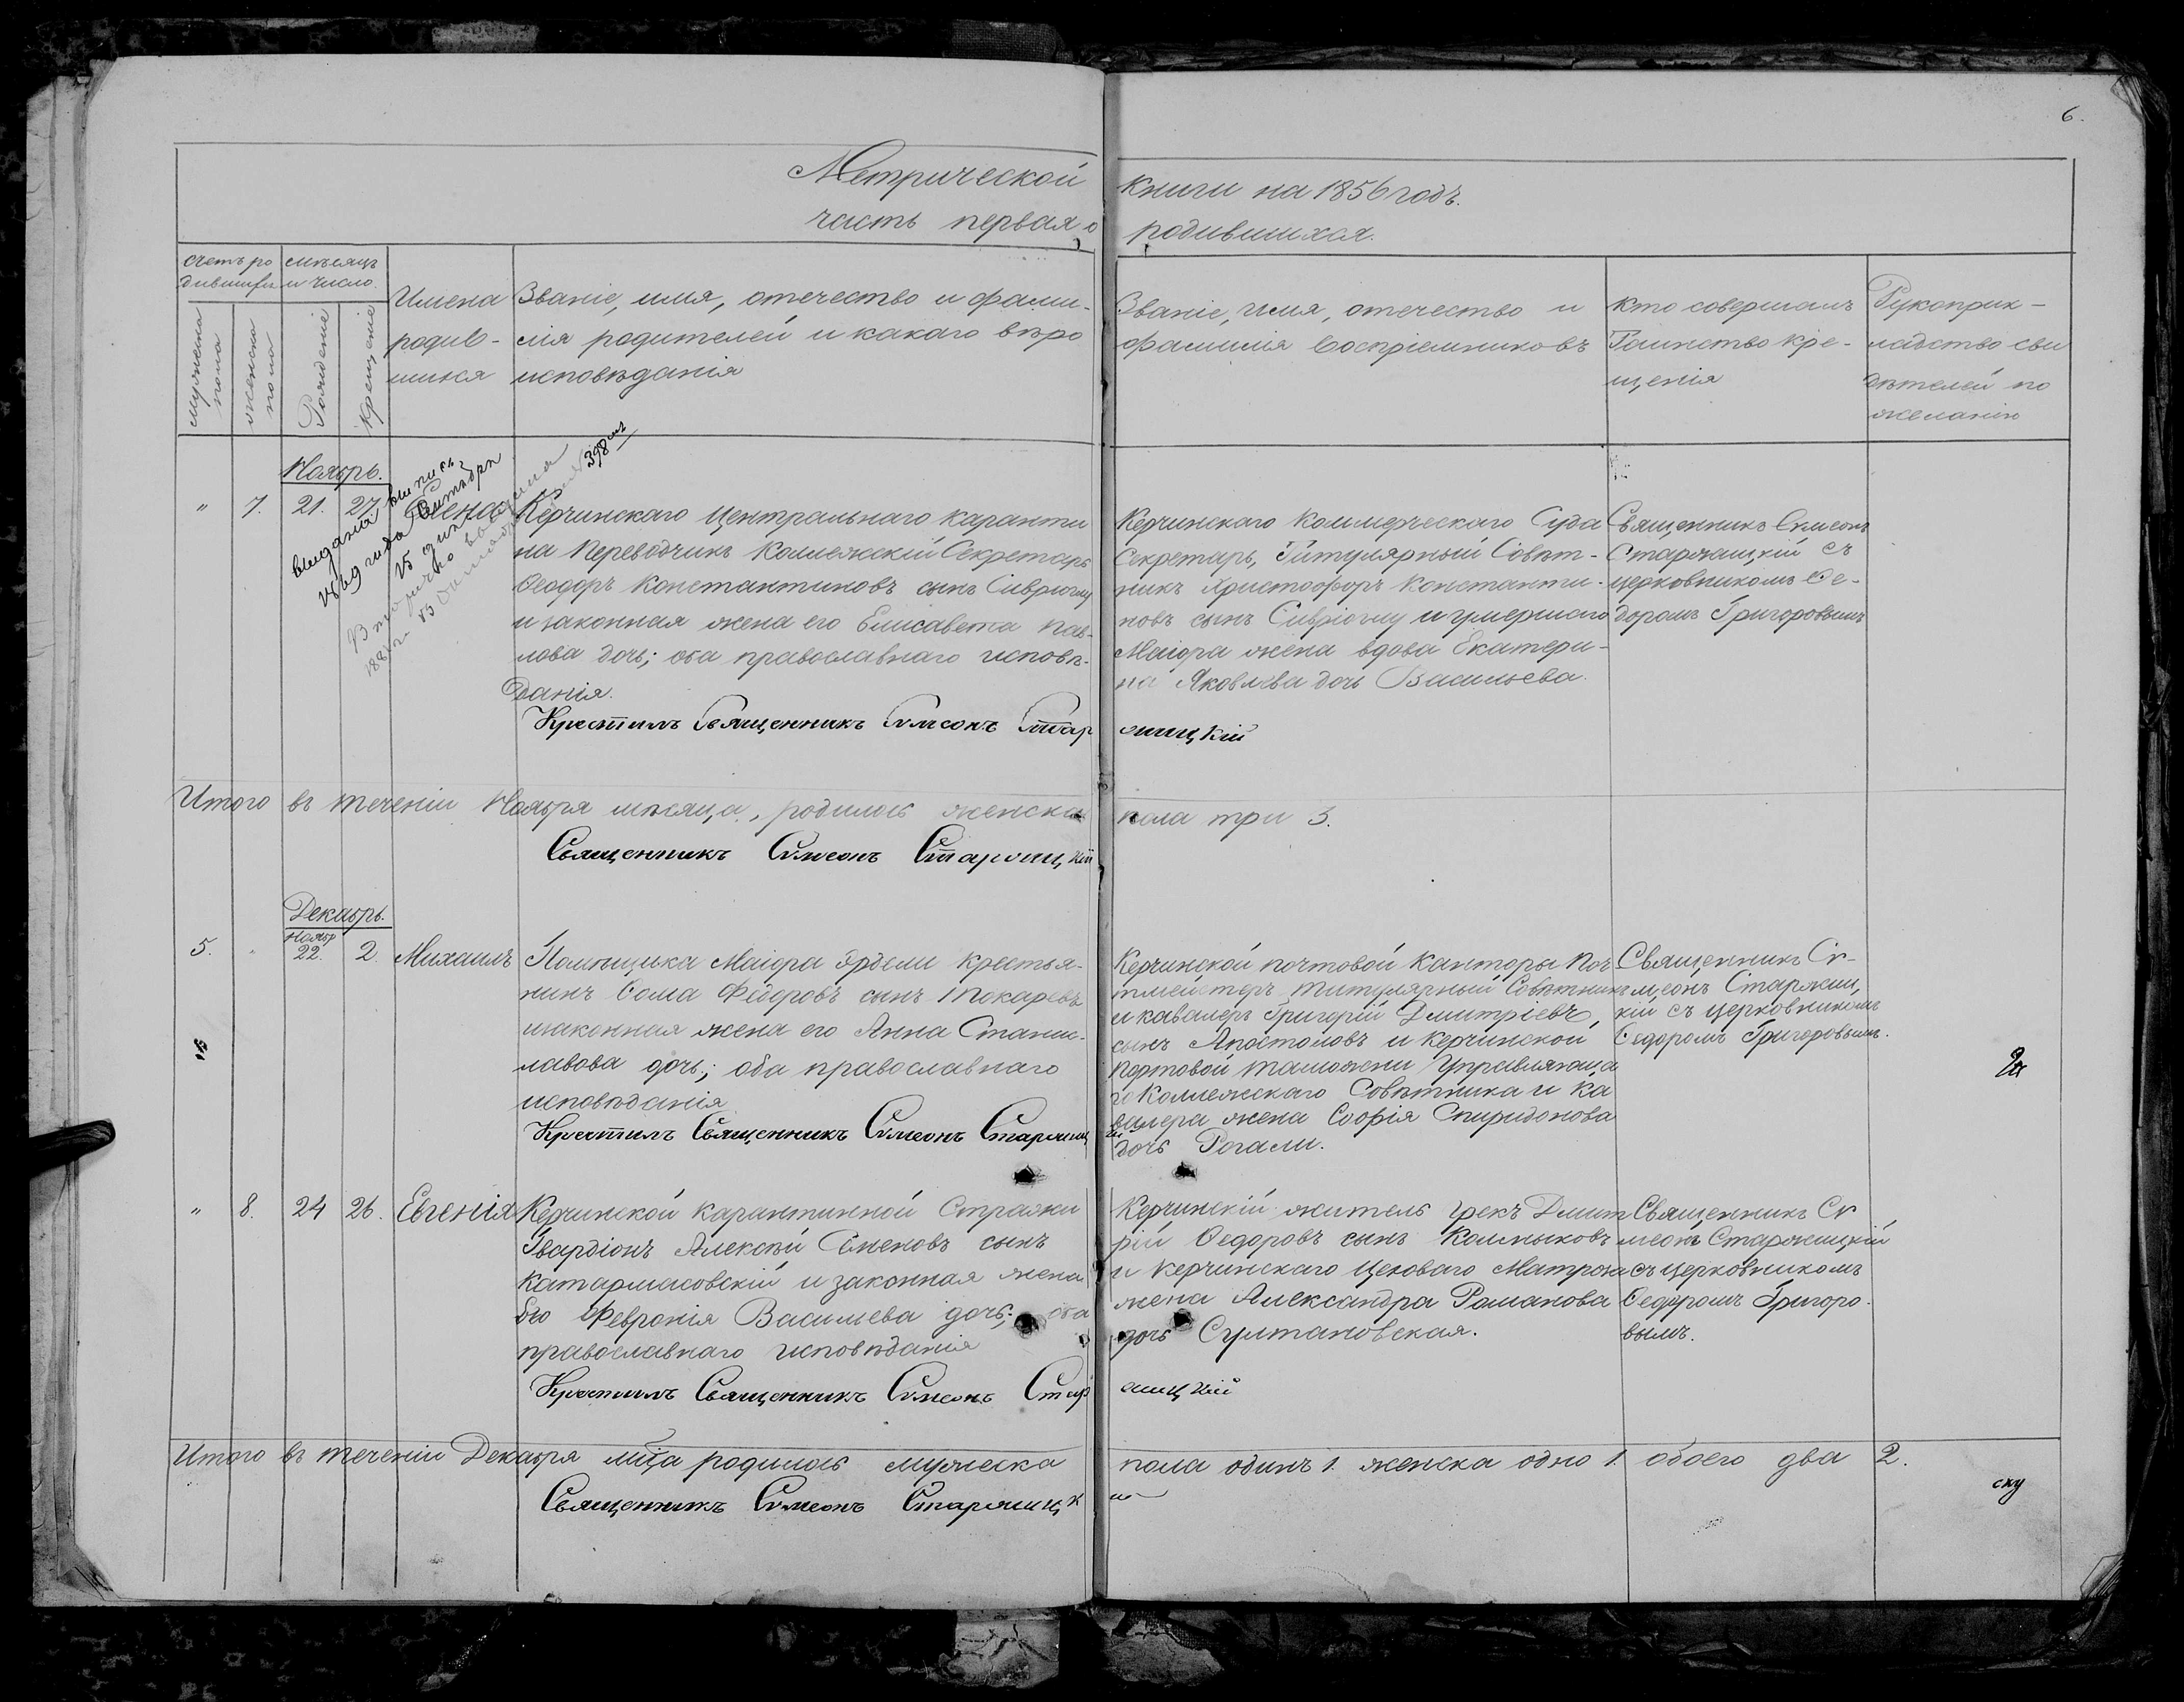 6.
Метрической книги на 1856 годъ.
часть первая о родившихся.
счетъ ро
дившихся
мѣсяцъ
и число.
мужеска
пола
женска
пола
Рожденіе
Крещеніе
Имена
родив-
шихся
Званіе, имя, отечество и фами-
лія родителей и какаго вѣро
исповѣданія
Званіе, имя, отечество и
фамилія воспріемниковъ
Кто совершалъ
Таинство кре-
щенія
Рукоприк-
ладство сви
дѣтелей по
желанію
Ноябрь.
" 7. 21. 27. Елена
выдана выпись
1869 года Октября
15 дня
398
Керчинскаго Центральнаго Каранти
на Переводчикъ Коллежскій Секретарь
Ѳеодоръ Константиновъ сынъ Сиврiоглу
и законная жена его Елисавета Пав-
лова дочь; оба православнаго исповѣ-
данія.
Керчинскаго Коммерческаго Суда
Секретарь, Титулярный Совѣт-
никъ Христофоръ Константи-
новъ сынъ Сиврiоглу и умершаго
Маіора жена вдова Екатери-
на Яковлева дочь Васильева.
Священникъ Симеонъ
Старжицкій съ
церковникомъ Ѳе-
доромъ Григоровымъ
Крестилъ Священникъ Симеонъ Старжицкій
Итого въ теченіи Ноября мѣсяца, родилось женска пола три 3.
Священникъ Симеонъ Старжицкій
Декабрь.
5. " Ноябр 22. 2. Михаилъ
Помѣщика Маіора Эрдели крестья-
нинъ Ѳома Федоровъ сынъ Токаревъ
и законная жена его Анна Станис-
лавова дочь; оба православнаго
исповѣданія
Керчинской почтовой Канторы Поч
тмейстеръ Титулярный Совѣтникъ
и кавалеръ Григорій Дмитріевъ
сынъ Апостоловъ и Керчинской
Портовой таможни Управляюща
го Коллежскаго Совѣтника и Ка
валера жена Софія Спиридонова
дочь Рогали.
Священникъ Си-
меонъ Старжиц
кій съ церковникомъ
Ѳедоромъ Григоровымъ.
Крестилъ Священникъ Симеонъ Старжицкій
" 8. 24 26. Евгенія
Керчинской карантинной Стражи
Гвардіонъ Алексѣй Семеновъ сынъ
Катармасовскій и законная жена
его Февронія Васильева дочь; оба
православнаго исповѣданія
Керчинскій житель грекъ Дмит
рій Ѳедоровъ сынъ Колмыковъ
и Керчинскаго Цеховаго Матроза
жена Александра Романова
дочь Султановская.
Священникъ Си
меонъ Старжицкій
съ церковникомъ
Ѳедоромъ Григоро-
вымъ.
Крестилъ Священникъ Симеонъ Старжицкій
Итого въ теченіи Декабря мѣца родилось мужеска пола одинъ 1. женска одно 1. обоего два 2.
Священникъ Симеонъ Старжицкій